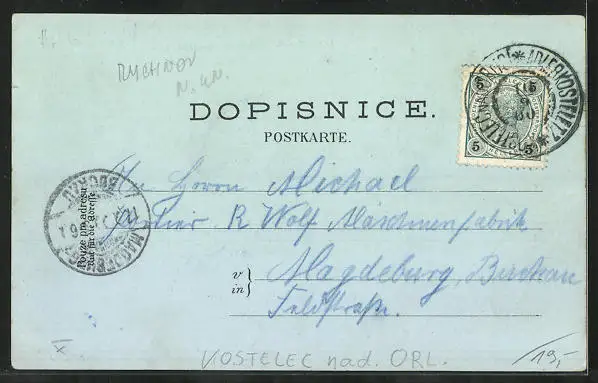 RYCHNOV
N. KN.
DOPISNICE.
POSTKARTE.
ADLERKOSTELETZ
5 5
5 5
An Herrn Michael
R Wolf Maschinenfabrik
Pouze pro adresu
Nur für die Adresse
MAGDEBURG
BUCKAU
v
in } Magdeburg, Buckau
Feldstraße.
KOSTELEC nad. ORL.
19,-